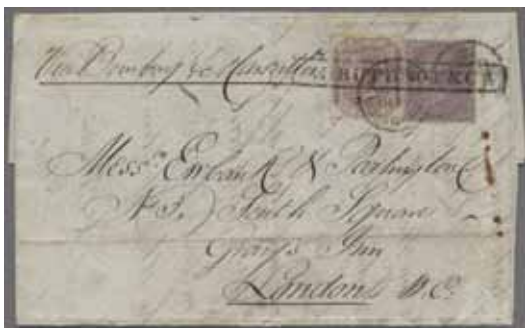 Via Bombay & Marseilles
Mess.rs Ewbank & Partington
No 3. South Square
Gray's Inn
London W.C.